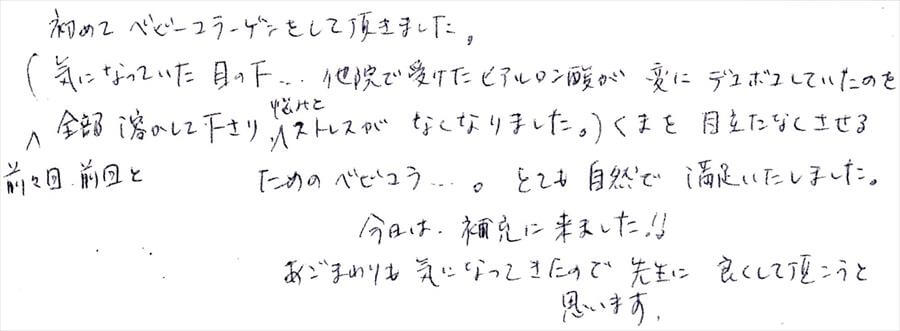 初めて ベビーコラーゲンをして頂きました。
(気になっていた 目の下… 他院で受けたヒアルロン酸が 変に デコボコしていたのを
前々回、前回と 全部 溶かして下さり、悩みとストレスが なくなりました。) くまを 目立たなくさせる
ためのベビコラ…。 とても 自然で 満足いたしました。
今日は、補充に 来ました!!
あごまわりも 気になってきたので 先生に 良くして頂こうと
思います。